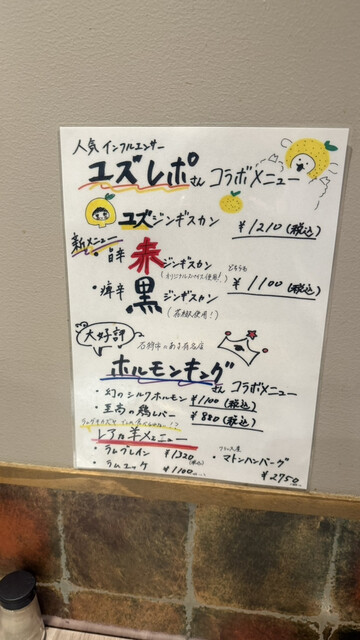 人気インフルエンサー
ユズレポさんコラボメニュー
ユズジンギスカン ¥1210(税込)
新メニュー
・旨辛 赤ジンギスカン
(オリジナルスパイス使用!) どちらも
¥1100(税込)
・痺辛 黒ジンギスカン
(花椒使用!)
大好評
ある有名店
ホルモンキングさんコラボメニュー
・幻のシルクホルモン ¥1100(税込)
・至高の鶏レバー ¥880(税込)
レアな羊メニュー
・ラムブレイン ¥1320(税込)
・マトンハンバーグ
・ラムユッケ ¥1100
¥2750